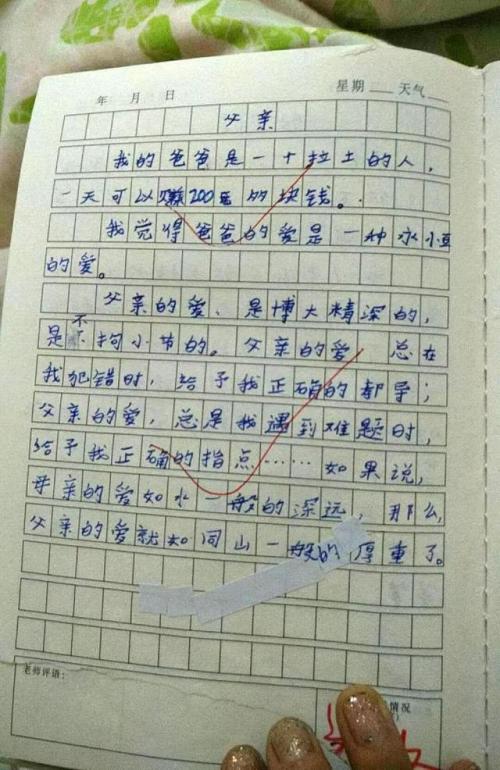 年 月 日 星期 天气
父亲
我的爸爸是一个拉土的人,
一天可以赚200多的块钱。
我觉得爸爸的爱是一种永小豆
的爱。
父亲的爱、是博大精深的,
是不拘小节的。父亲的爱 总在
我犯错时,给予我正确的都导;
父亲的爱,总是我遇到难题时,
给予我正确的指点……如果说,
母亲的爱如水一般的深远,那么,
父亲的爱就如同山一般的厚重了。
老师评语:
情况